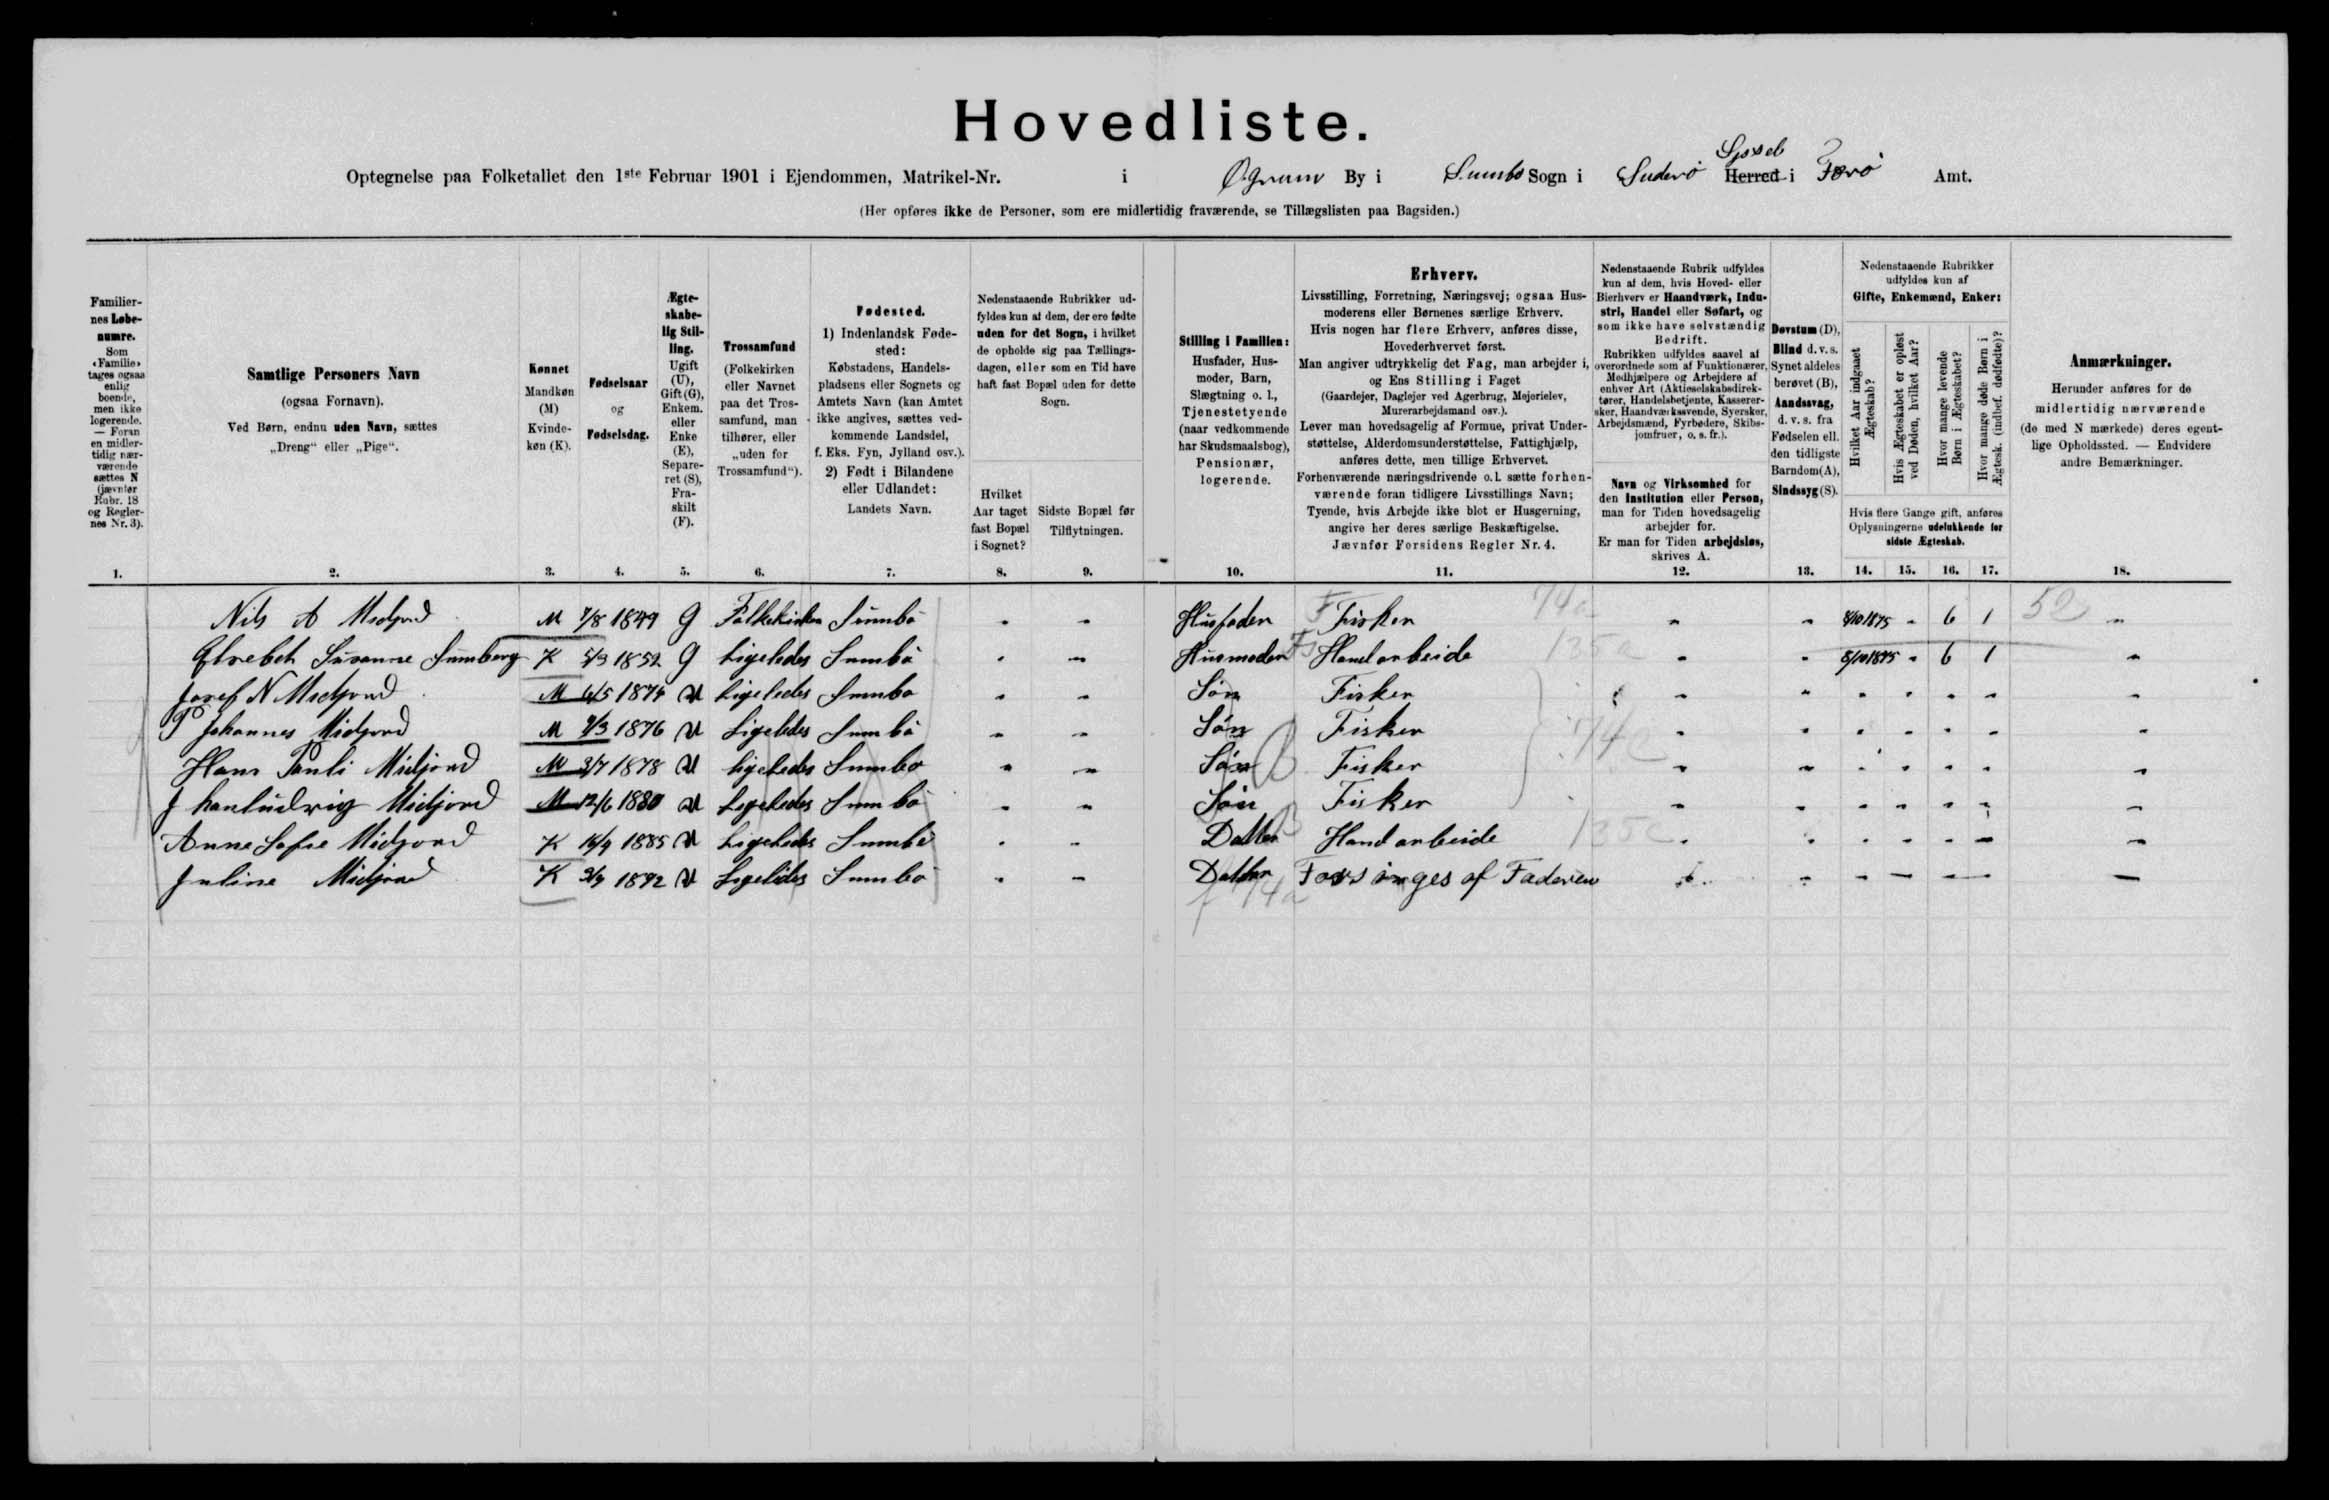 Hovedliste.
Syssel
Optegnelse paa Folketallet den 1ste Februar 1901 i Ejendommen, Matrikel-Nr. i Øgrum By i Sumbø Sogn i Suderø Herred i Færø Amt.
(Her opføres ikke de Personer, som ere midlertidig fraværende, se Tillægslisten paa Bagsiden.)
Familiernes Løbenumre.
Som «Familie» tages ogsaa enlig boende, men ikke logerende. — Foran en midlertidig nærværende sættes N (jævnfør Rubr. 18 og Reglernes Nr. 3).
Samtlige Personers Navn
(ogsaa Fornavn).
Ved Børn, endnu uden Navn, sættes
„Dreng“ eller „Pige“.
Kønnet
Mandkøn (M)
Kvindekøn (K).
Fødselsaar
og
Fødselsdag.
Ægteskabelig Stilling.
Ugift (U), Gift (G), Enkem. eller Enke (E), Separeret (S), Fraskilt (F).
Trossamfund
(Folkekirken eller Navnet paa det Trossamfund, man tilhører, eller „uden for Trossamfund“).
Fødested.
1) Indenlandsk Fødested:
Købstadens, Handelspladsens eller Sognets og Amtets Navn (kan Amtet ikke angives, sættes vedkommende Landsdel, f. Eks. Fyn, Jylland osv.).
2) Født i Bilandene eller Udlandet:
Landets Navn.
Nedenstaaende Rubrikker udfyldes kun af dem, der ere fødte uden for det Sogn, i hvilket de opholde sig paa Tællingsdagen, eller som en Tid have haft fast Bopæl uden for dette Sogn.
Hvilket Aar taget fast Bopæl i Sognet?
Sidste Bopæl før Tilflytningen.
Stilling i Familien:
Husfader, Husmoder, Barn, Slægtning o. l., Tjenestetyende (naar vedkommende har Skudsmaalsbog), Pensionær, logerende.
Erhverv.
Livsstilling, Forretning, Næringsvej; ogsaa Husmoderens eller Børnenes særlige Erhverv.
Hvis nogen har flere Erhverv, anføres disse, Hovederhvervet først.
Man angiver udtrykkelig det Fag, man arbejder i, og Ens Stilling i Faget
(Gaardejer, Daglejer ved Agerbrug, Mejerielev, Murerarbejdsmand osv.).
Lever man hovedsagelig af Formue, privat Understøttelse, Alderdomsunderstøttelse, Fattighjælp, anføres dette, men tillige Erhvervet.
Forhenværende næringsdrivende o. l. sætte forhenværende foran tidligere Livsstillings Navn;
Tyende, hvis Arbejde ikke blot er Husgerning, angive her deres særlige Beskæftigelse.
Jævnfør Forsidens Regler Nr. 4.
Nedenstaaende Rubrik udfyldes kun af dem, hvis Hoved- eller Bierhverv er Haandværk, Industri, Handel eller Søfart, og som ikke have selvstændig Bedrift.
Rubrikken udfyldes saavel af overordnede som af Funktionærer, Medhjælpere og Arbejdere af enhver Art (Aktieselskabsdirektører, Handelsbetjente, Kasserersker, Haandværkssvende, Syersker, Arbejdsmænd, Fyrbødere, Skibsjomfruer, o. s. fr.).
Navn og Virksomhed for den Institution eller Person, man for Tiden hovedsagelig arbejder for.
Er man for Tiden arbejdsløs, skrives A.
Døvstum (D), Blind d. v. s. Synet aldeles berøvet (B), Aandssvag, d. v. s. fra Fødselen ell. den tidligste Barndom (A), Sindssyg (S).
Nedenstaaende Rubrikker udfyldes kun af
Gifte, Enkemænd, Enker:
Hvilket Aar indgaaet Ægteskab?
Hvis Ægteskabet er opløst ved Døden, hvilket Aar?
Hvor mange levende Børn i Ægteskabet?
Hvor mange døde Børn i Ægtesk. (indbef. dødfødte)?
Hvis flere Gange gift, anføres Oplysningerne udelukkende for sidste Ægteskab.
Anmærkninger.
Herunder anføres for de midlertidig nærværende (de med N mærkede) deres egentlige Opholdssted. — Endvidere andre Bemærkninger.
1. 2. 3. 4. 5. 6. 7. 8. 9. 10. 11. 12. 13. 14. 15. 16. 17. 18.
Nils A Midjord M 7/8 1849 G Folkekirken Sumbø - - Husfader F Fisker 74a - - 8/10 1875 - 6 1 52 -
Elsebet Susanne Sumberg K 5/3 1852 G Ligeledes Sumbø - - Husmoder Fs Handarbeide 135c - - 8/10 1875 - 6 1 -
Josef N Midjord M 6/5 1874 U Ligeledes Sumbø - - Søn Fisker - - - - - - -
P Johannes Midjord M 7/3 1876 U Ligeledes Sumbø - - Søn Fisker 74c - - - - - - -
Hans Pauli Midjord M 3/7 1878 U Ligeledes Sumbø - - Søn B Fisker - - - - - - -
J hanludvig Midjord M 12/6 1880 U Ligeledes Sumbø - - Søn Fisker - - - - - - -
Anne Sofie Midjord K 16/4 1885 U Ligeledes Sumbø - - Datter B Handarbeide 135c - - - - - - -
Juline Midjord K 3/9 1892 U Ligeledes Sumbø - - Datter Forsinges af Faderen - - - - - - -
f 74a